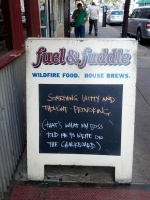 fuel & fuddle
WILDFIRE FOOD. HOUSE BREWS.
SOMETHING WITTY AND
THOUGHT PROVOKING.
(THAT'S WHAT MY BOSS
TOLD ME TO WRITE ON
THE CHALKBOARD)